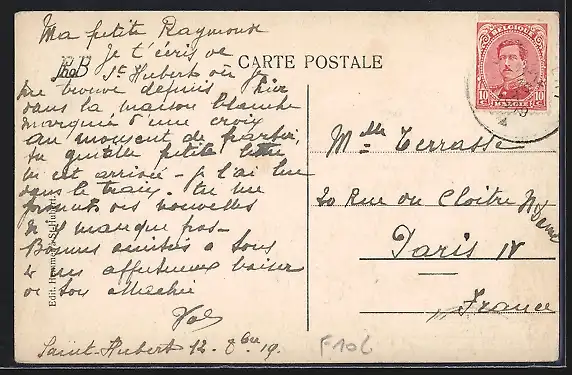 Ma petite Raymonde
Je t'écris de
St Hubert où je
me trouve depuis hier
dans la maison blanche
marquée d'une croix
Au moment de partir,
ta gentille petite lettre
m'est arrivée - je l'ai lue
dans le train. tu me
donnes des nouvelles
n'y manque pas -
Bonnes amitiés à tous
& un affectueux baiser
de ton attachée
Saint-Hubert 12. 8bre 19.
Edit. St-Hubert
CARTE POSTALE
BELGIQUE
10 10
BELGIË
Melle Terrasse
20 Rue du Cloître N. Dame
Paris IV
France
F10c